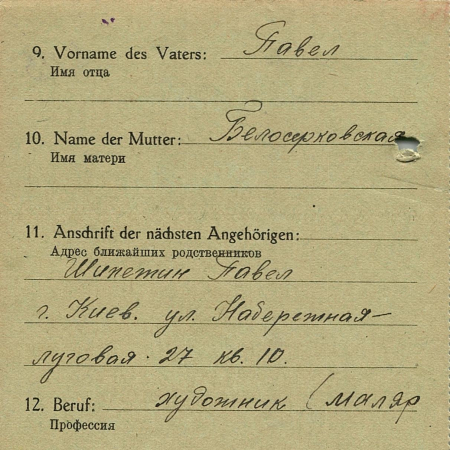 9. Vorname des Vaters: Павел
Имя отца
10. Name der Mutter: Белоцерковская
Имя матери
11. Anschrift der nächsten Angehörigen:
Адрес ближайших родственников
Шипетин Павел
г. Киев. ул. Набережная-
луговая. 27 кв. 10.
12. Beruf: художник (маляр
Профессия